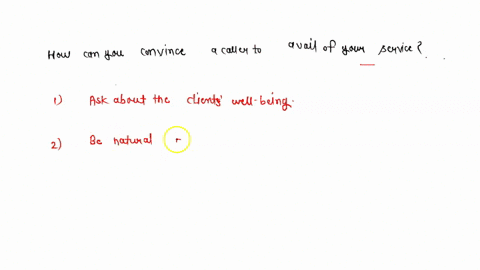 How can you convince a caller to avail of your service?
1) Ask about the clients' well-being.
2) Be natural